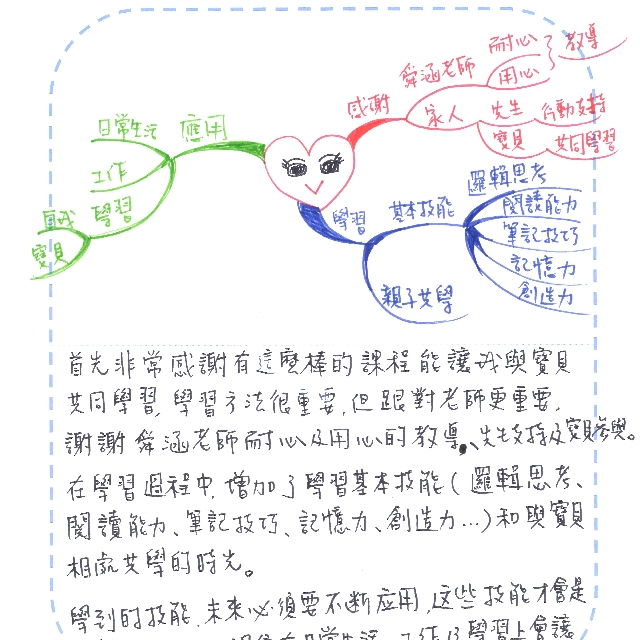 感謝
舜涵老師
耐心
用心
教導
家人
先生
行動支持
寶貝
共同學習
應用
日常生活
工作
學習
自我
寶貝
學習
基本技能
邏輯思考
閱讀能力
筆記技巧
記憶力
創造力
親子共學
首先非常感謝有這麼棒的課程能讓我與寶貝
共同學習,學習方法很重要,但跟對老師更重要,
謝謝舜涵老師耐心及用心的教導、先生支持及寶貝參與。
在學習過程中,增加了學習基本技能(邏輯思考、
閱讀能力、筆記技巧、記憶力、創造力...)和與寶貝
相處共學的時光。
學到的技能,未來必須要不斷應用,這些技能才會是
在日常生活、工作及學習上會讓